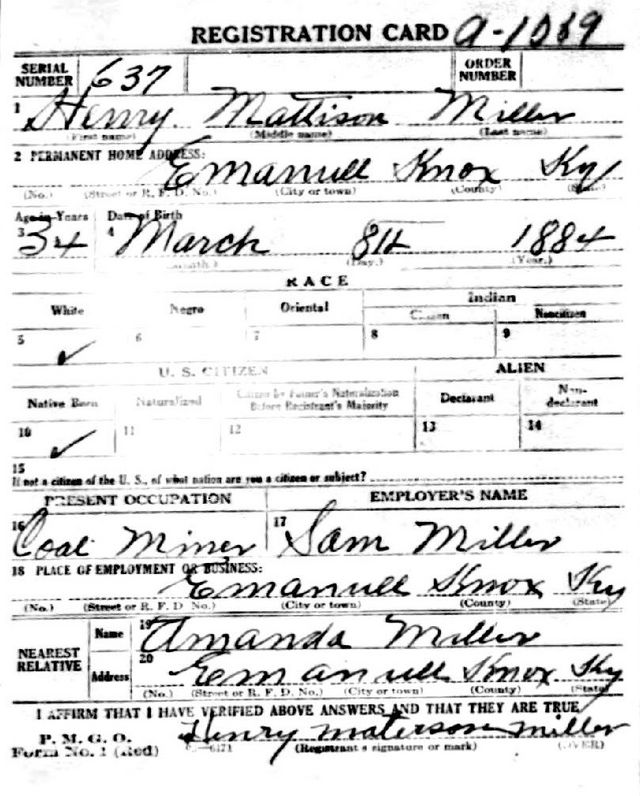 REGISTRATION CARD A-1069
SERIAL NUMBER 637 ORDER NUMBER
1 Henry Mattison Miller
(First name) (Middle name) (Last name)
2 PERMANENT HOME ADDRESS:
Emanuell Knox Ky
(No.) (Street or R. F. D. No.) (City or town) (County) (State)
Age in Years Date of Birth
3 34 4 March 8th 1884
(Month.) (Day.) (Year.)
RACE
White Negro Oriental Indian
Citizen Noncitizen
5 ✓ 6 7 8 9
U. S. CITIZEN ALIEN
Native Born Naturalized Citizen by Father's Naturalization Before Registrant's Majority Declarant Non-declarant
10 ✓ 11 12 13 14
15
If not a citizen of the U. S., of what nation are you a citizen or subject?
PRESENT OCCUPATION EMPLOYER'S NAME
16 Coal Miner 17 Sam Miller
18 PLACE OF EMPLOYMENT OR BUSINESS:
Emanuell Knox Ky
(No.) (Street or R. F. D. No.) (City or town) (County) (State)
NEAREST RELATIVE
Name 19 Amanda Miller
Address 20 Emanuell Knox Ky
(No.) (Street or R. F. D. No.) (City or town) (County) (State)
I AFFIRM THAT I HAVE VERIFIED ABOVE ANSWERS AND THAT THEY ARE TRUE
P. M. G. O.
Form No. 1 (Red) Henry materson miller
(Registrant's signature or mark) (OVER)